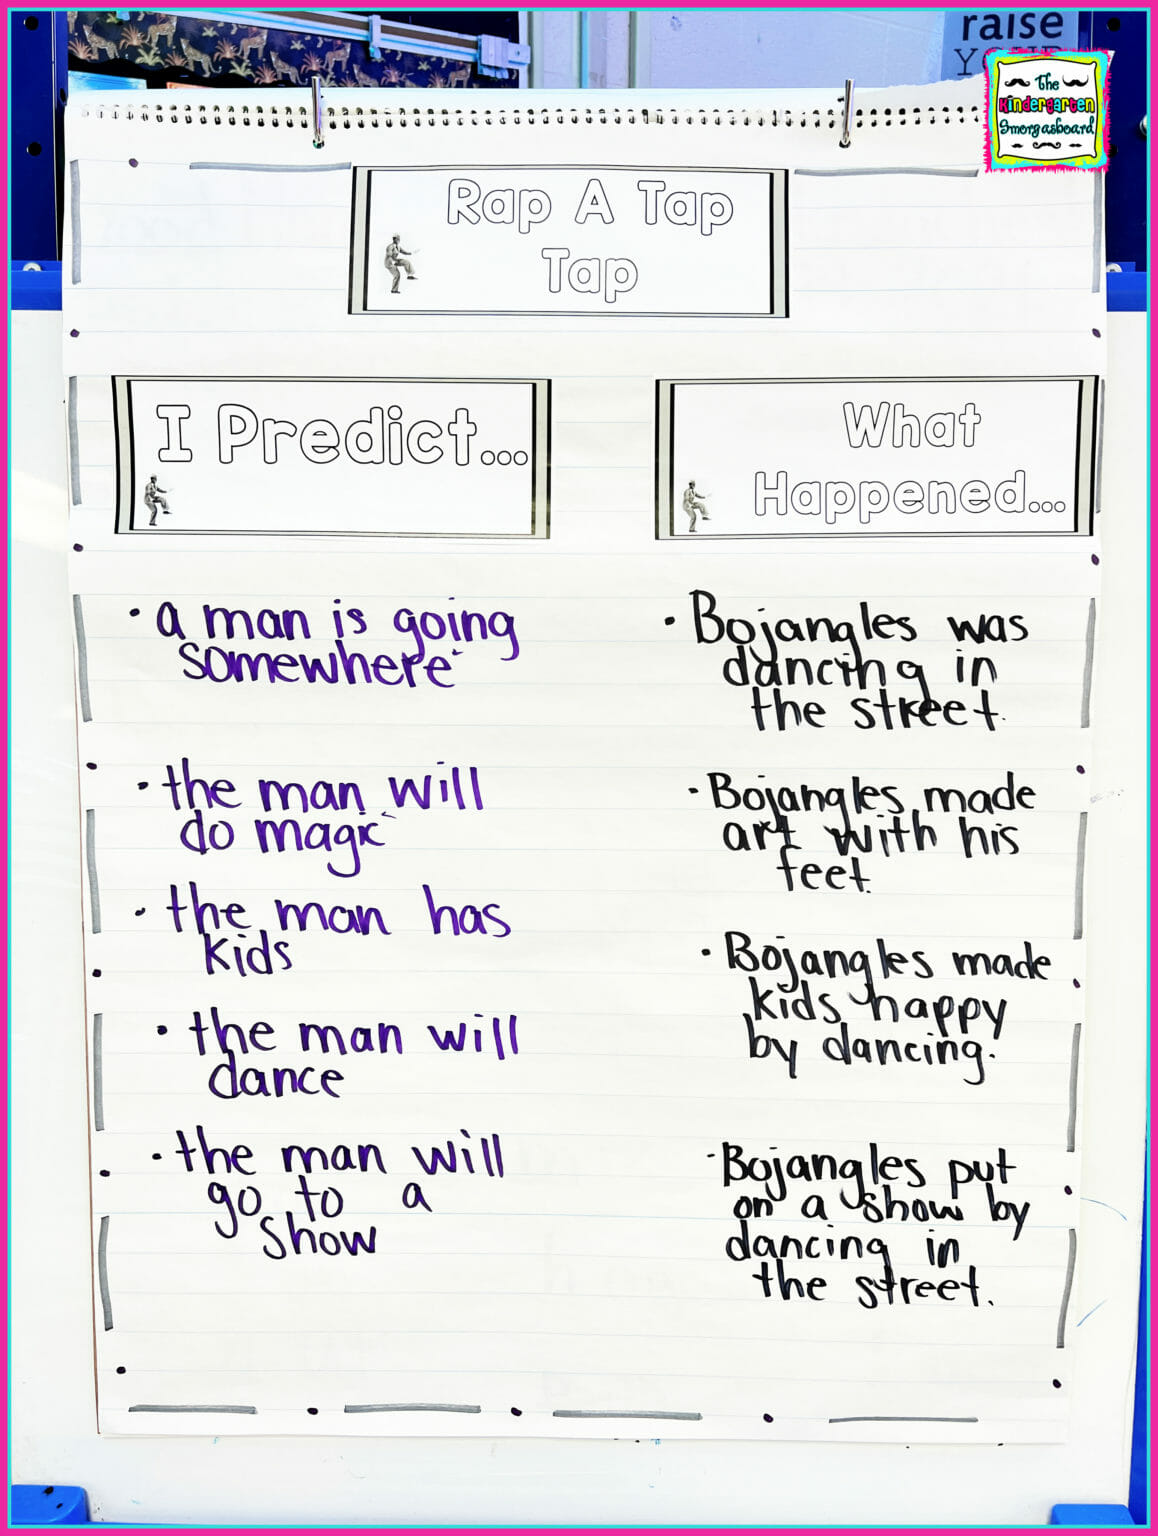 raise
YOUR
The
Kindergarten
Smorgasboard
Rap A Tap
Tap
I Predict...
• a man is going
somewhere
• the man will
do magic
• the man has
kids
• the man will
dance
• the man will
go to a
show
What
Happened...
• Bojangles was
dancing in
the street.
• Bojangles made
art with his
feet.
• Bojangles made
kids happy
by dancing.
• Bojangles put
on a show by
dancing in
the street.